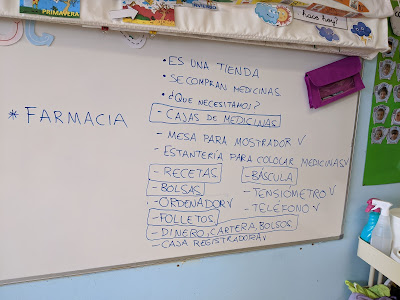 PRIMAVERA
INVIERNO
hace hoy?
• ES UNA TIENDA
• SE COMPRAN MEDICINAS
• ¿QUE NECESITAMOS?
* FARMACIA
- CAJAS DE MEDICINAS
- MESA PARA MOSTRADOR ✓
- ESTANTERÍA PARA COLOCAR MEDICINAS ✓
- RECETAS - BÁSCULA
- BOLSAS - TENSIÓMETRO ✓
- ORDENADOR ✓ - TELÉFONO ✓
- FOLLETOS
- DINERO, CARTERA, BOLSOS
- CAJA REGISTRADORA ✓